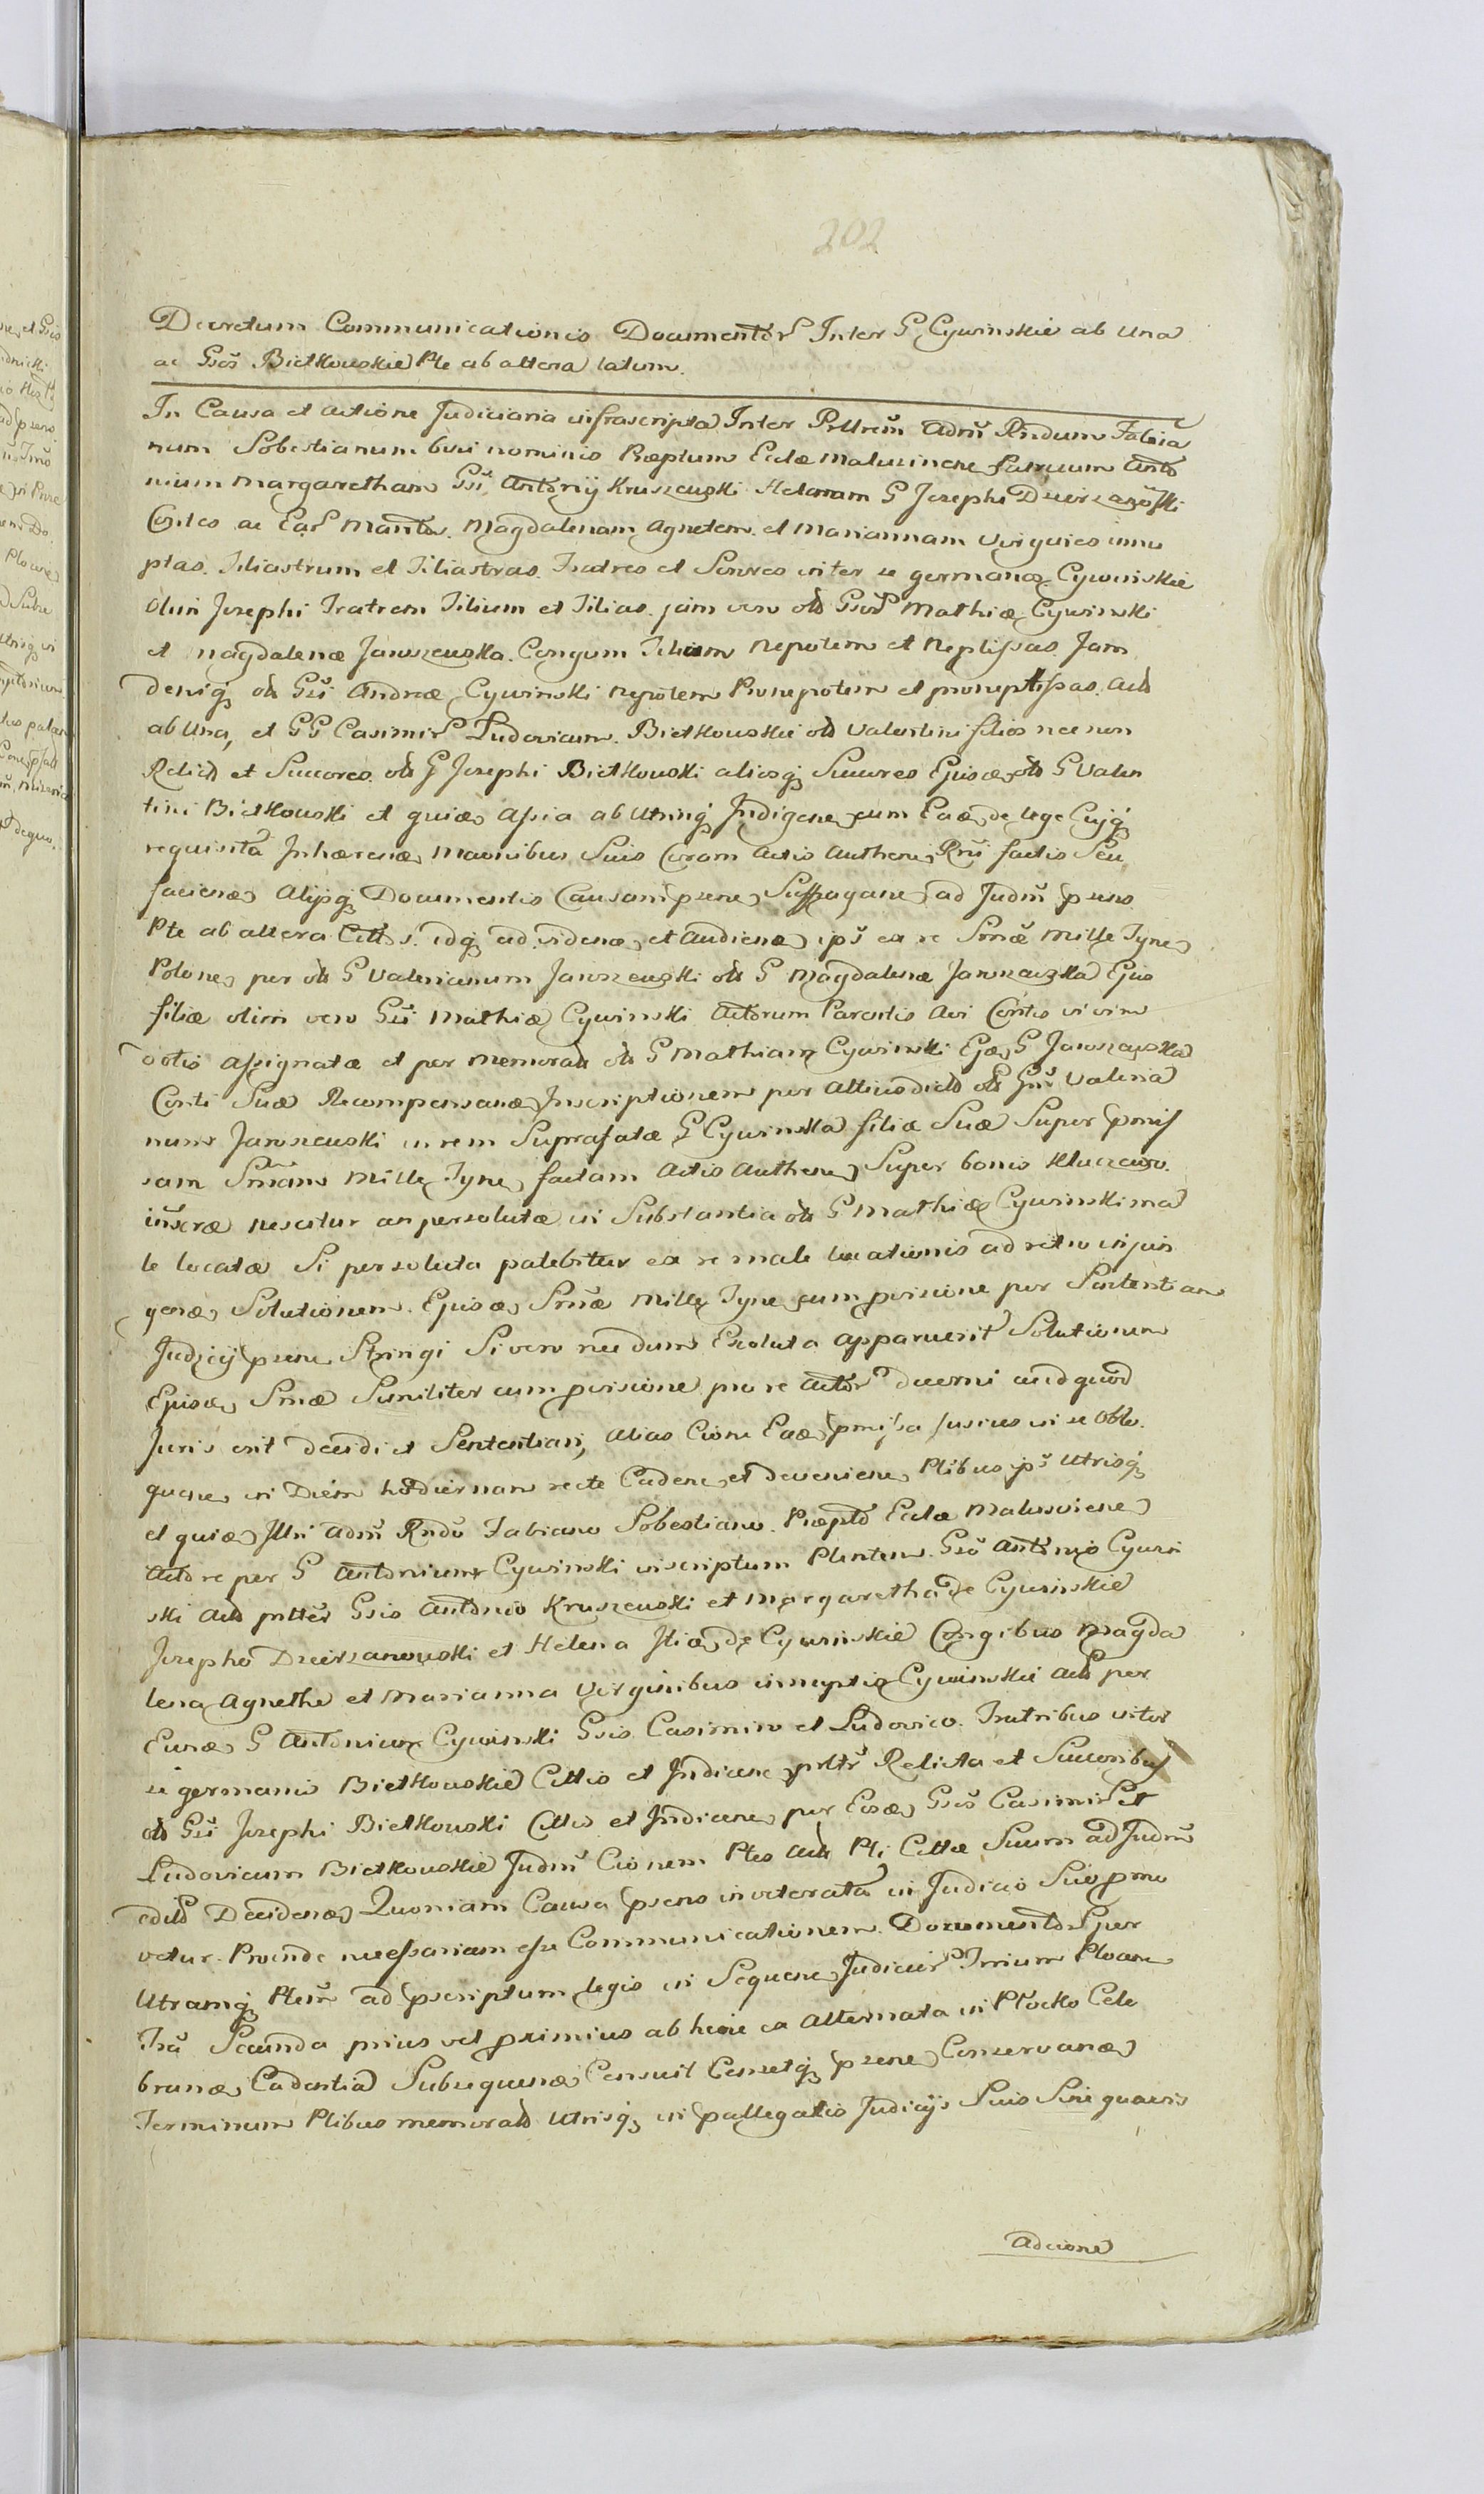 202
Decretum Communicationis Documentor Inter G Cywinskie ab Una
ac Gsos Bietkouskie Pte ab altera latum.
In Causa et Actione Judiciaria infrascripta Inter Pllrem Adm Rndum Fabia
num Sobestianum bini nominis Praeptum Eclae Maluzinens Patruum Anto
nium Margaretham Gsi Antonij Kruszewski Helenam G Josephi Dzierzanoski
Contes ac Ear Marita. Magdalenam Agnetem et Mariannam Virgines innu
ptas. Filiastrum et Filiastras. Fratres et Sorores inter se germanos Cywinskie
Olim Josephi Fratrem Filium et Filias. jam vero olt Gsor Mathiae Cywinski
et Magdalenae Jaroszewska Congum Filium Nepotem et Neptissas Jam
deniq olt Gsi Andreae Cywinski Nepotem Pronepotem et proneptissas Act
ab Una, et GG Casimir Ludovicum Bietkouskie olt Valentini filios nec non
Relict et Succores olt G Josephi Bietkouski aliosq Succores Ejusd olt G Valen
tini Bietkouski et quiae Assia ab Utrinq Indigene cum Eade de lege Cujq
requisita Inhaerenae Manibus Suis Coram Actis Authen Rni factis Seu
faciend Alijsq Documentis Causam psene Suffragane ad Judm psens
Pte ab altera Citt s. idq ad videnae et Audienae ips ex re Smae Mille Tyne
Polone per olt G Valerianum Jaroszewski olt G Magdalenae Jaroszewska Ejus
filiae olim vero Gsi Mathiae Cywinski Actorum Parentis Avi Contis in vim
dotis Assignatae et per Memorat olt G Mathiam Cywinski Ejae G Jaroszewska
Conti Suae Recompensanae Inscriptionem per Attinsdict olt Gm Valeria
num Jaroszewski in rem Suprafatae G Cywinska filiae Suae Super pmis
sam Smam Mille Tyne factam Actis Authene Super bonis Kluczewo.
inscrae nescitur an persolutae in Substantia olt G Mathiae Cywinski ma
le locatae Si persoluta patebitur ex re male locationis ad retro injun
genae Solutionem Ejusae Smae Mille Tyne cum provisione per Sententiam
Judicij psene Stringi Si vero necdum Exoluta apparuerit Solutionem
Ejusae Smae Similiter cum provisione pro re Actor decerni aut quod
Juris erit decidi et Sententiari, Alias Cione Eade pmissa fusius in se Oblo.
quene in Diem hodiernam recte Cadene et deveniene Ptibus ps Utrisq
et quiae Illri Adm Rndo Fabiano Sobestiano Praepto Eclae Malusinene
Actore per G Antonium Cywinski inscriptum Plentem. Gso Antonio Cywin
ski Act pntter Gsis Antonio Kruszewski et Margaretha de Cywinskie
Josepho Dzierzanowski et Helena Itiae de Cywinskie Congibus Magda
lena Agnethe et Marianna Virginibus innuptis Cywinskie Act per
Eunae G Antonium Cywinski Gsis Casimiro et Ludovico Fratribus inter
se germanis Bietkouskie Cittis et Indicene pnttr Relicta et Succoribus
olt Gsi Josephi Bietkouski Cittis et Indicene per Eosae Gsos Casimir et
Ludovicum Bietkouskie Judm Cionem Ptes Act Pti Cittae Suum ad Judm
edict Decidenae Quoniam Causa psens inveterata in Judicio Suo pmo
vetur. Proinde necessariam esse Communicationem Documentor per
Utramq Ptem ad pscriptum legis in Sequene Judicijs Trrium Plocene
Fra Secunda prius vel primius ab hinc ex Alternata in Plocko Cele
branae Cadentia Subsequenae Censuit Censetq psene Conservanae
Terminum Ptibus memorat Utrisq in pallegatis Judicijs Suis Sine quavis
adcione